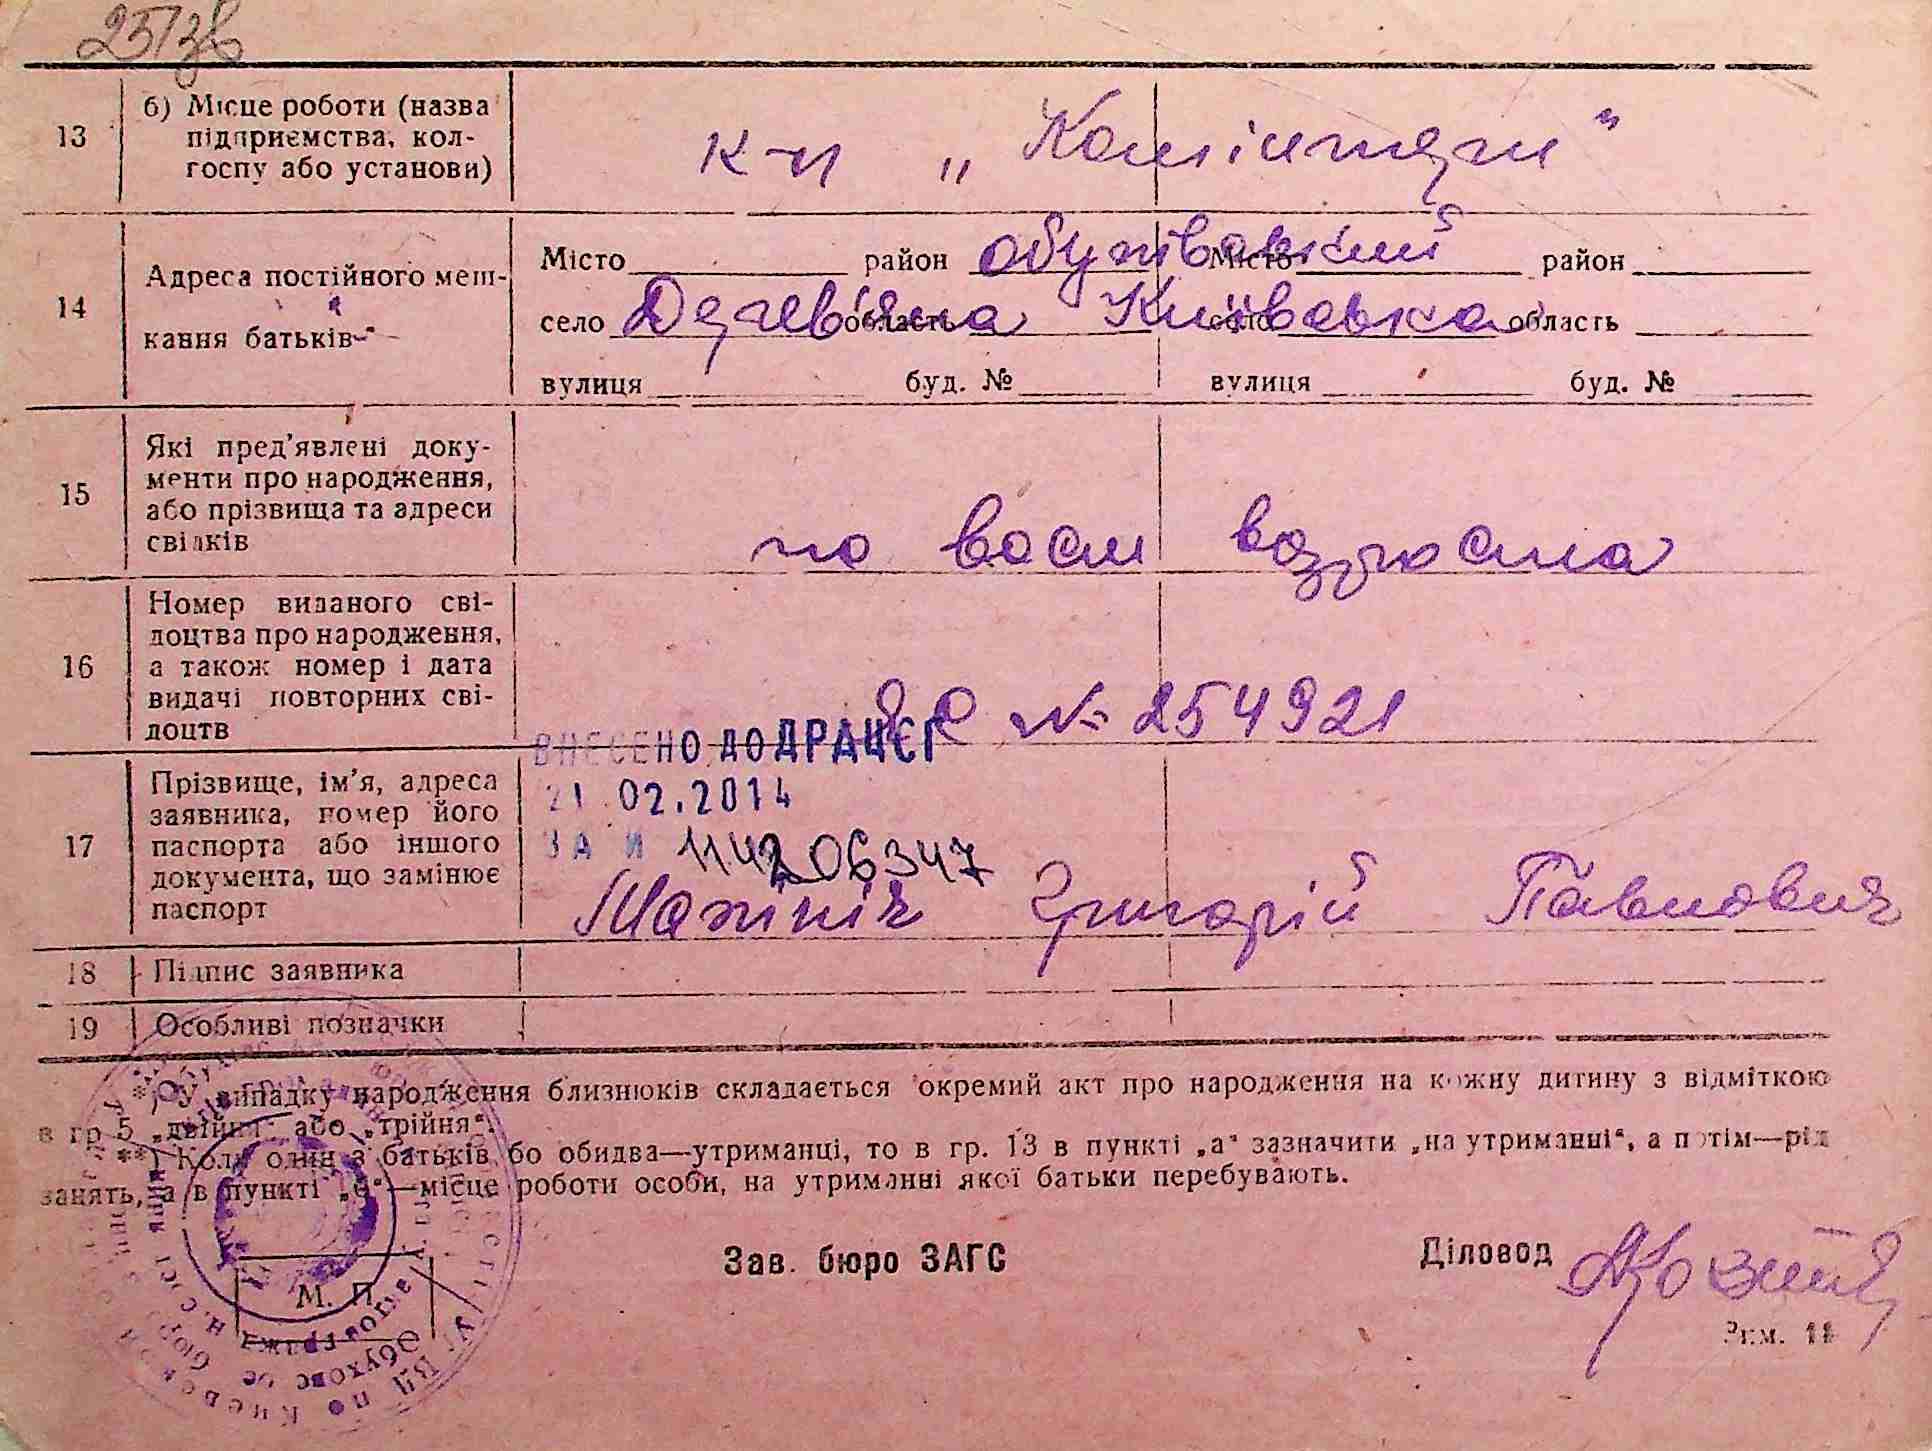 13
б) Місце роботи (назва
підприємства, кол-
госпу або установи)
к-п „Комінтерн"
14
Адреса постійного меш-
кання батьків
Місто район Обухівський Місто район
село Дерев'яна область Київська село область
вулиця буд. № вулиця буд. №
15
Які пред'явлені доку-
менти про народження,
або прізвища та адреси
свідків
по восм возроста
16
Номер виданого сві-
доцтва про народження,
а також номер і дата
видачі повторних сві-
доцтв
№ 254921
ВНЕСЕНО ДО ДРАЦСГ
21.02.2014
ЗА №
17
Прізвище, ім'я, адреса
заявника, номер його
паспорта або іншого
документа, що замінює
паспорт
Григорій Павлович
18 Підпис заявника
19 Особливі позначки
*) У випадку народження близнюків складається окремий акт про народження на кожну дитину з відміткою
в гр 5 „двійня" або „трійня".
**) Коли один з батьків або обидва—утриманці, то в гр. 13 в пункті „а" зазначити „на утриманні", а потім—рід
занять, а в пункті „б"—місце роботи особи, на утриманні якої батьки перебувають.
Зав. бюро ЗАГС
Діловод
М. П.